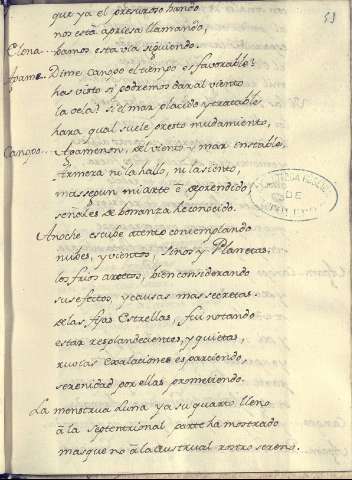 que ya el presuroso bando 53
nos está apriesa llamando,
Elena... vamos esta via siguiendo.
Agame.. Dime Canopo el tiempo es favorable?
has visto si podremos dar al viento
la vela? si el mar placido y tratable
hara qual suele presto mudamiento,
Canopo... Agamenon, del viento y mar enstable,
firmeza ni la hallo, ni la siento
mas segun mi arte é deprendido
señales de bonanza he conocido.
Anoche estube atento contemplando
nubes, y vientos, sinos y Planetas,
los frios arectos, bien considerando
sus efectos, y causas mas secretas.
de las fijas Estrellas, fui notando
estar resplandecientes, y quietas,
rubias exalationes esparciendo,
serenidad por ellas prometiendo.
La menstrua Luna ya su quarto lleno
á la septentrional parte ha mostrado
mas que no á la Austrual rostro sereno.
DE